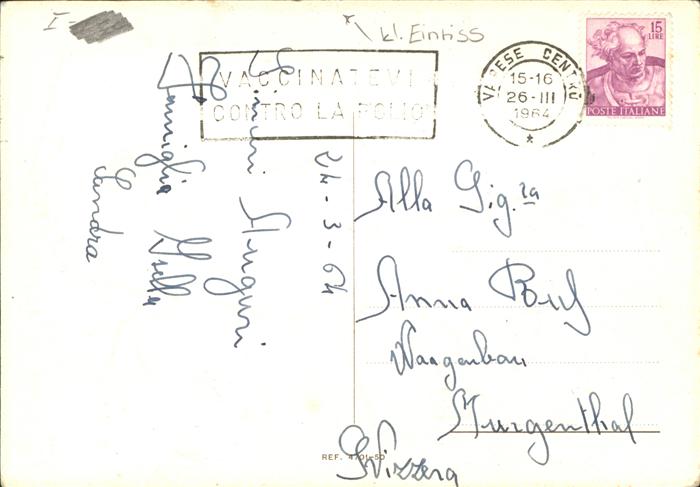 I-
kl. Einriss
15
LIRE
POSTE ITALIANE
VARESE CENTRO
15-16
26-III
1964
VACCINATEVI
CONTRO LA POLIO
24-3-64
Sinceri Auguri
Famiglia
Sandra
Alla Sig.ra
Anna
Waagenbau
Murgenthal
Svizzera
REF. 4701-50